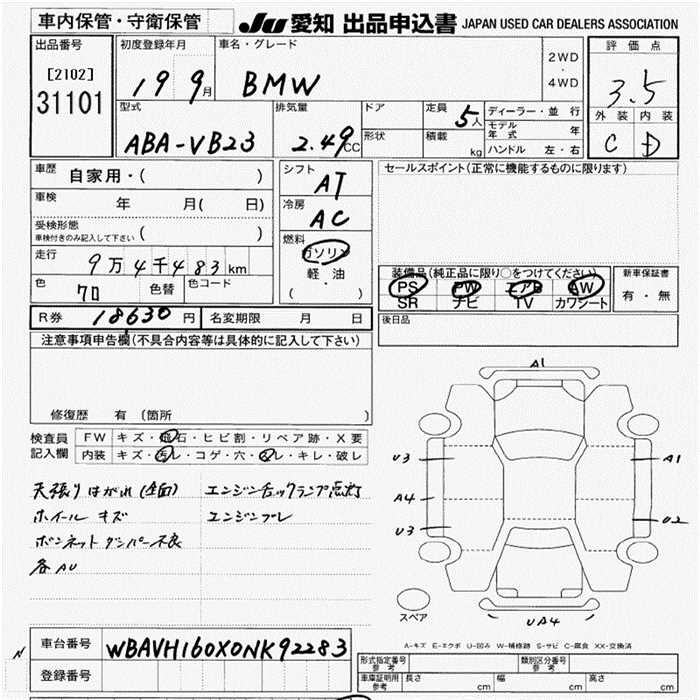 車内保管・守衛保管
JU 愛知 出品申込書 JAPAN USED CAR DEALERS ASSOCIATION
出品番号
[2102]
31101
初度登録年月
19 9月
車名・グレード
BMW
2WD
・
4WD
評価点
3.5
外装 内装
C D
型式
ABA-VB23
排気量
2.49CC
ドア
形状
定員
5人
積載
kg
ディーラー・並行
モデル年式 年
ハンドル 左・右
車歴
自家用・( )
車検
年 月( 日)
受検形態
車検付きのみ記入して下さい ( )
走行
9万4千483km
色
クロ
色替
色コード
シフト
AT
冷房
AC
燃料
ガソリン
軽・油
( )
セールスポイント(正常に機能するものに限ります)
装備品(純正品に限り○をつけてください)
PS PW エアB AW
SR ナビ TV カワシート
新車保証書
有・無
R券 18630円
名変期限 月 日
後日品
注意事項申告欄(不具合内容等は具体的に記入して下さい)
修復歴 有(箇所 )
検査員
記入欄
FW キズ・飛石・ヒビ割・リペア跡・X要
内装 キズ・汚レ・コゲ・穴・スレ・キレ・破レ
天張りはがれ(全面)
エンジンチェックランプ点灯
ホイール キズ
エンジンブレ
ボンネットダンパー不良
各AU
A1
U3
A1
A4
U3
U2
スペア
UA4
A-キズ E-エクボ U-凹み W-補修跡 S-サビ C-腐食 XX-交換済
N
車台番号
WBAVH160X0NK92283
登録番号
形式指定番号
参考
類別区分番号
参考
車庫証明用
参考
長さ cm
幅 cm
高さ cm